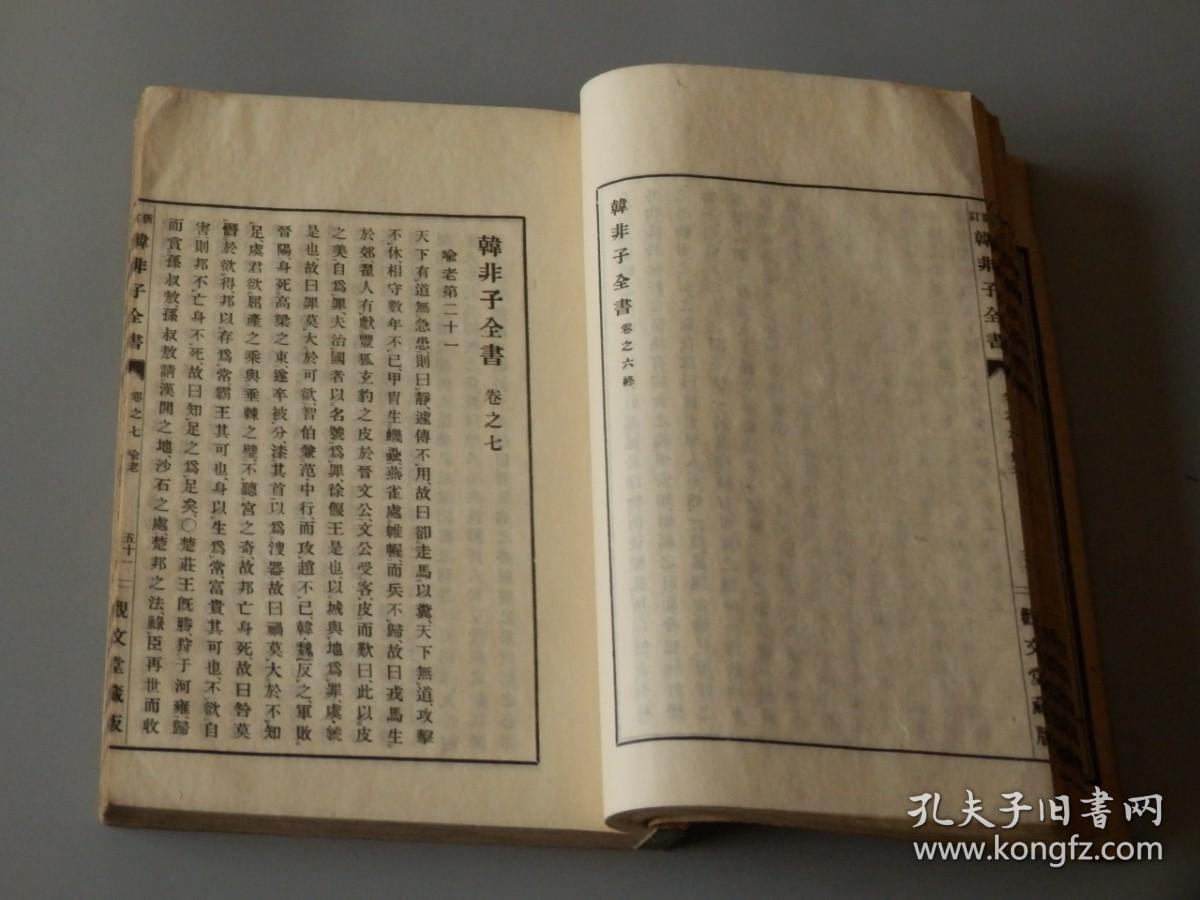 韓非子全書 卷之六終
新訂 韓非子全書
觀文堂藏版
韓非子全書 卷之七
喻老第二十一
天下有道、無急患、則曰靜、遽傳不用、故曰卻走馬以糞、天下無道、攻擊
不休、相守數年不已、甲胄生蟣蝨、燕雀處帷幄、而兵不歸、故曰戎馬生
於郊、翟人有獻豐狐玄豹之皮於晉文公、文公受客皮而歎曰、此以皮
之美、自爲罪、夫治國者以名號爲罪、徐偃王是也、以城與地爲罪、虞虢
是也、故曰罪莫大於可欲、智伯兼范中行、而攻趙不已、韓魏反之、軍敗
晉陽、身死高梁之東、遂卒被分、漆其首以爲溲器、故曰禍莫大於不知
足、虞君欲屈產之乘與垂棘之璧、不聽宮之奇、故邦亡身死、故曰咎莫
憯於欲得、邦以存爲常、霸王其可也、身以生爲常、富貴其可也、不欲自
害、則邦不亡身不死、故曰知足之爲足矣、〇楚莊王既勝、狩于河雍、歸
而賞孫叔敖、孫叔敖請漢閒之地、沙石之處、楚邦之法、祿臣再世而收
新訂 韓非子全書 卷之七 喻老 五十一 觀文堂藏版
孔夫子旧书网
www.kongfz.com